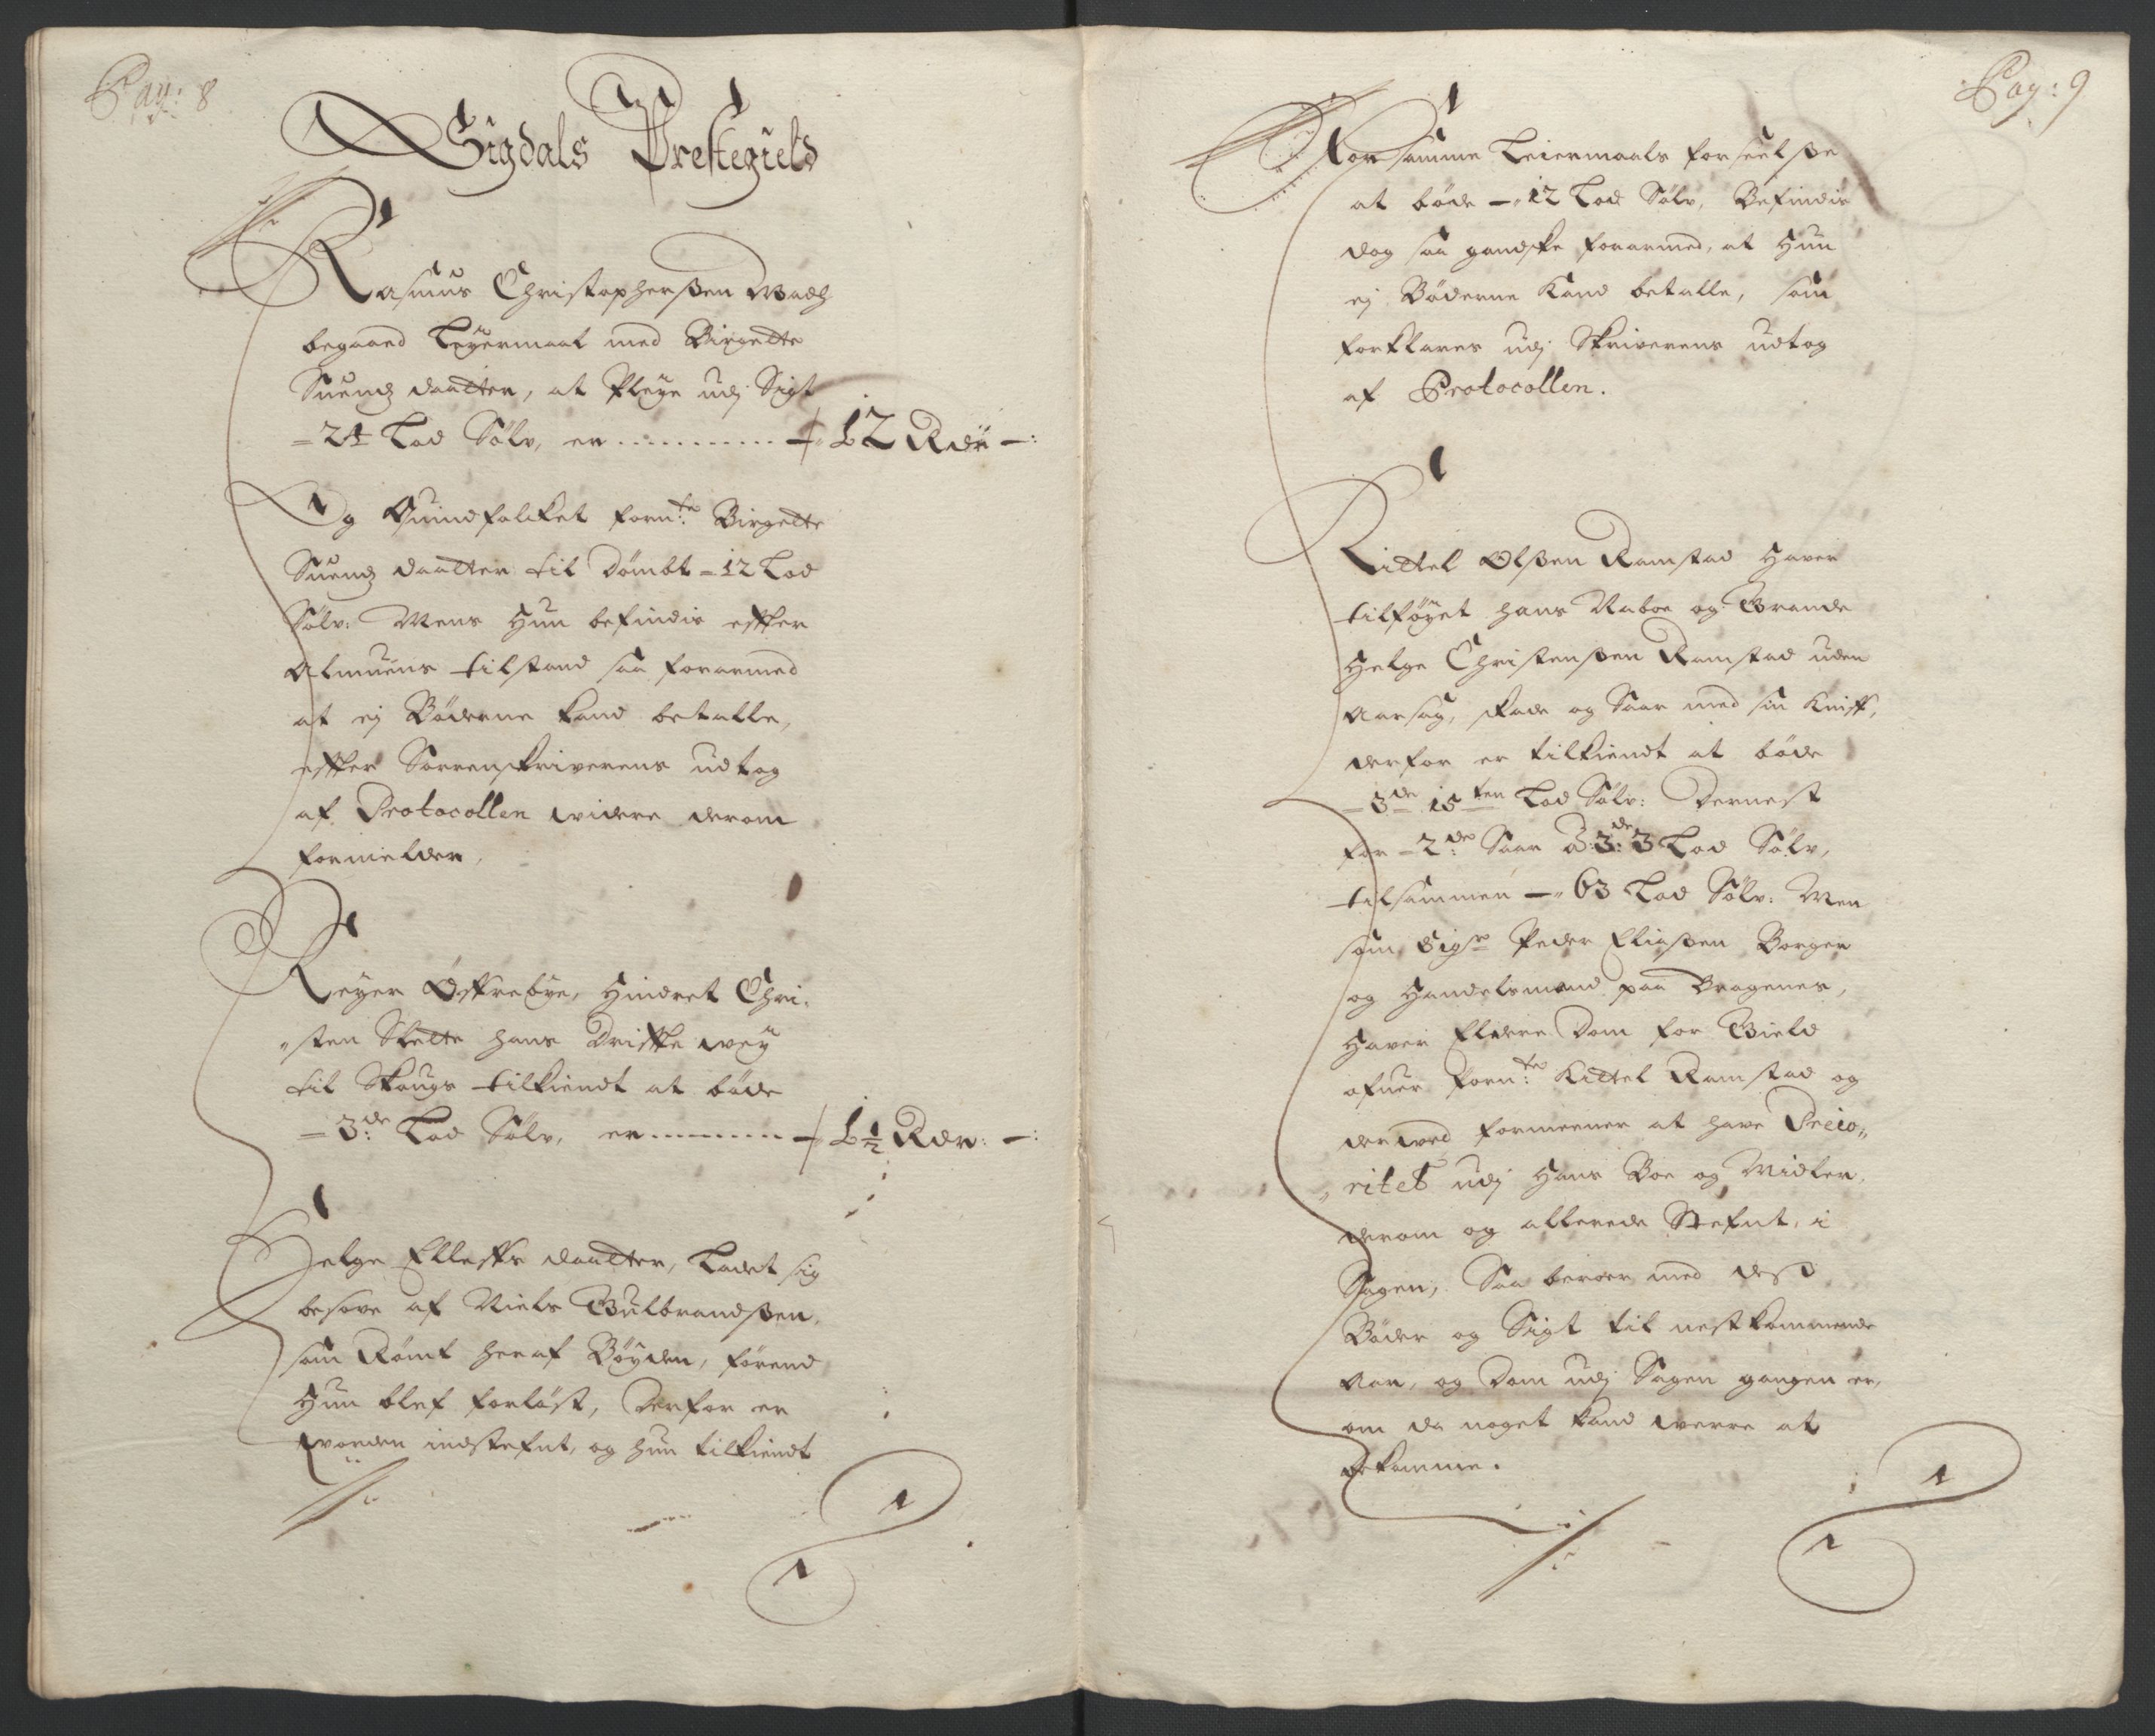 Pag: 8
Sigdals Prestegield
Rasmus Christophersßen Wadh
begaaed Leyermaal med Birgette
Suends daatter, at Pleye udj Sigt
= 24 Lod Sølv, er ............ — 12 Rdr —:
Og Quindfolcket forn:te Birgette
Suends daatter til dømbt = 12 Lod
Sølv: Mens Hun befindis effter
Almuens tilstand saa forarmed
at ej Bøderne kand betalle,
effter Sorrenskriverens udtog
af Protocollen widere derom
formelder,
Reyer Østrebye, Hindret Chri„
„sten Skelte hans Driffte wey
til Skougs tilkiendt at bøde
= 3:de Lod Sølv, er ............ — 1½ Rdr: —:
Helge Elleffs daatter, Ladet sig
besove af Niels Gulbrandsßen,
som Rømt her af Bøyden, førend
Hun blef forløst, Derfor er
worden indstefnt, og hun tilkiendt
Pag: 9
For samme Leiermaals forseelße
at bøde —„ 12 Lod Sølv, Befindis
dog saa gandske forarmed, at Hun
ej Bøderne Kand betalle, som
forklares udj Skriverens udtog
af Protocollen.
Kittel Olsßen Ramstad Haver
tilføyet hans Naboe og Grande
Helge Christensßen Ramstad uden
Aarsag, skade og Saar med sin Kniff,
derfor er tilkiendt at bøde
= 3de 15ten Lod Sølv: Dernest
for = 2:de Saar à 3:de 3 Lod Sølv,
tilsammen —„ 63 Lod Sølv: Men
som Sigr Peder Eliasßen Borger
og Handelsmand paa Bragenes,
Haver Eldere Dom for Gield
ofuer forn:te Kittel Ramstad og
derwed formeener at have Preio„
„ritet udj Hans Boe og Midler,
derom og allerede Stefnt, i
Sagen, Saa beroer med deß
Bøder og Sigt til nestkommende
Aar, og Dom udj Sagen gangen er,
om da noget kand werre at
bekomme.